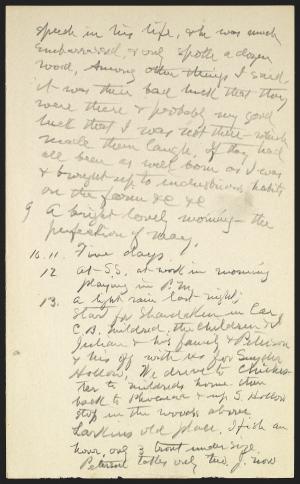 speech in his life, & he was much
embarrassed, & only spoke a dozen
words, Among other things I said
it was their bad luck that they
were there & probably my good
luck that I was not there – which
made them laugh. If they had
all been as well born as I was
& brought up to industrious habits
on the farm &c &c
9 A bright lovely morning – the
perfection of May.
10. 11. Fine days.
12 At S.S. at work in morning
playing in P.M.
13. A light rain last night;
Start for Shandaken in Car,
C.B. Mildred, the children &
Julian & his family &
& his off with us for Snyder
Hollow. We drove to Chichester
to Mildreds home then
back to Phoenicia & up S. Hollow
Stop in the woods above
Larkins old place. I fish an
hour, only 3 trout under size
Peterson takes only two, J. now